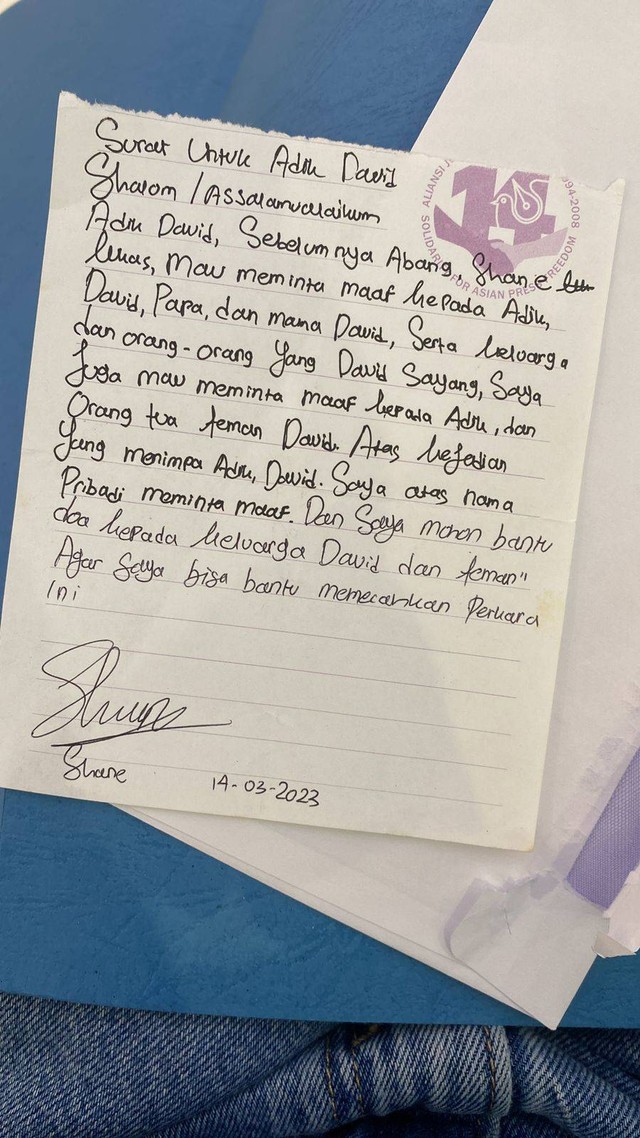 Surat Untuk Adik David
Shalom / Assalamualaikum
Adik David, Sebelumnya Abang, Shane
lukas, Mau meminta maaf kepada Adik,
David, Papa, dan mama David, Serta keluarga
dan orang-orang Yang David Sayang, Saya
Juga mau meminta maaf kepada Adik, dan
Orang tua teman David. Atas kejadian
Yang menimpa Adik, David. Saya atas nama
Pribadi meminta maaf. Dan Saya mohon bantu
doa kepada keluarga David dan teman"
Agar Saya bisa bantu memecahkan Perkara
Ini
Shane
14-03-2023
ALIANSI
1994-2008
14
SOLIDARI FOR ASIAN PRESS FREEDOM